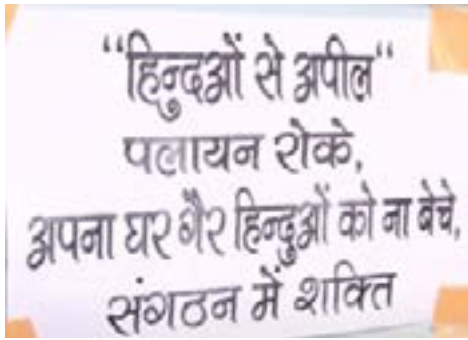 “हिन्दुओं से अपील“
पलायन रोके,
अपना घर गैर हिन्दुओं को ना बेचे,
संगठन में शक्ति